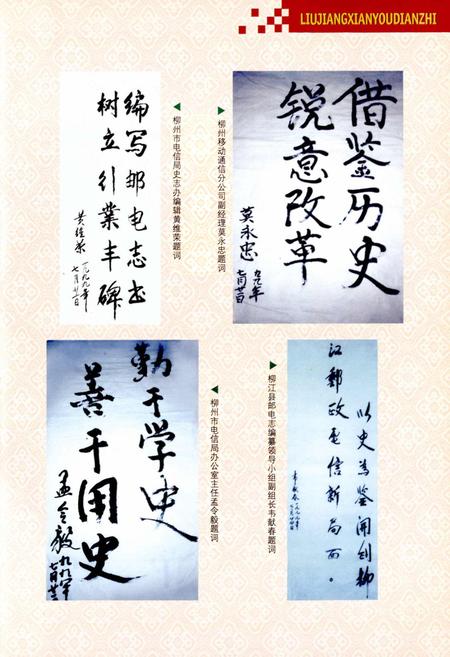 LIUJIANGXIANYOUDIANZHI
借鉴历史
锐意改革
莫永忠
九九年
七月廿日
柳州移动通信分公司副经理莫永忠题词
柳州市电信局史志办编辑黄维荣题词
编写邮电志书
树立行业丰碑
黄维荣
一九九九年
七月廿二日
柳江县邮电志编纂领导小组副组长韦献春题词
以史为鉴开创柳
江邮政电信新局面。
韦献春
柳州市电信局办公室主任孟令毅题词
勤于学史
善于用史
孟令毅
九九年
七月廿